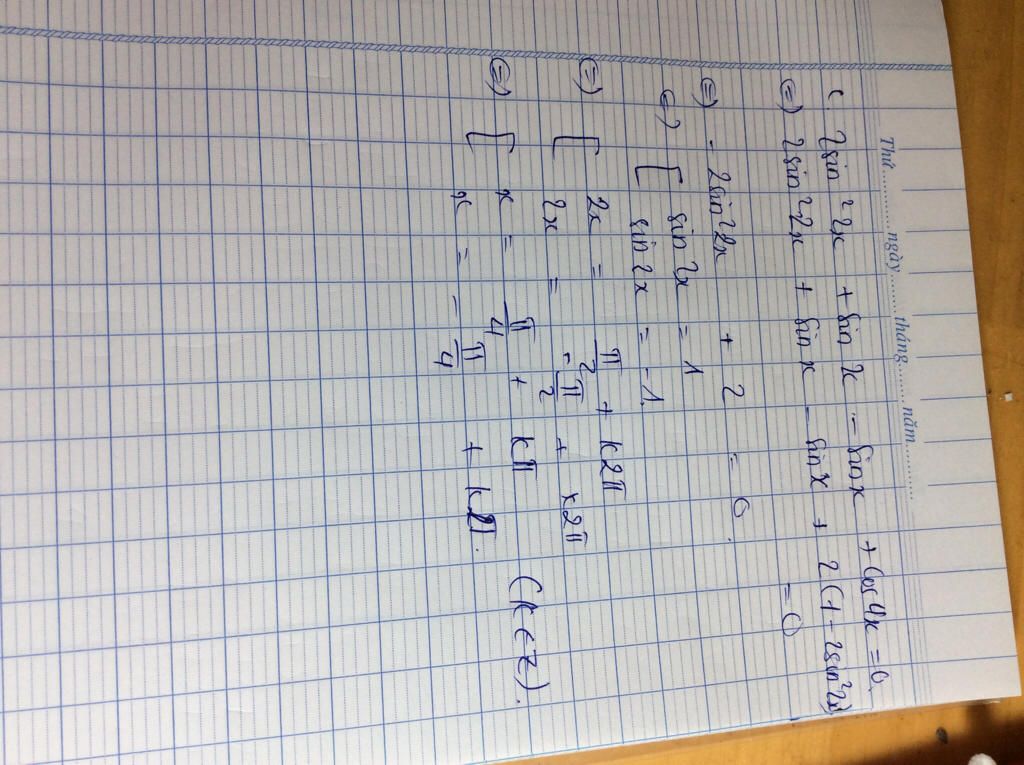 Thứ..........ngày..........tháng..........năm..........
2sin²2x + sin x - sin x + cos 4x = 0
(=) 2sin²2x + sin x - sin x + 2(1 - 2sin²2x)
= 0
(=) - 2sin²2x + 2 = 0.
(=) [ sin 2x = 1
sin 2x = -1
(=) [ 2x = π/2 + k2π
2x = -π/2 + k2π
(=) [ x = π/4 + kπ
x = -π/4 + kπ. (k ∈ Z).